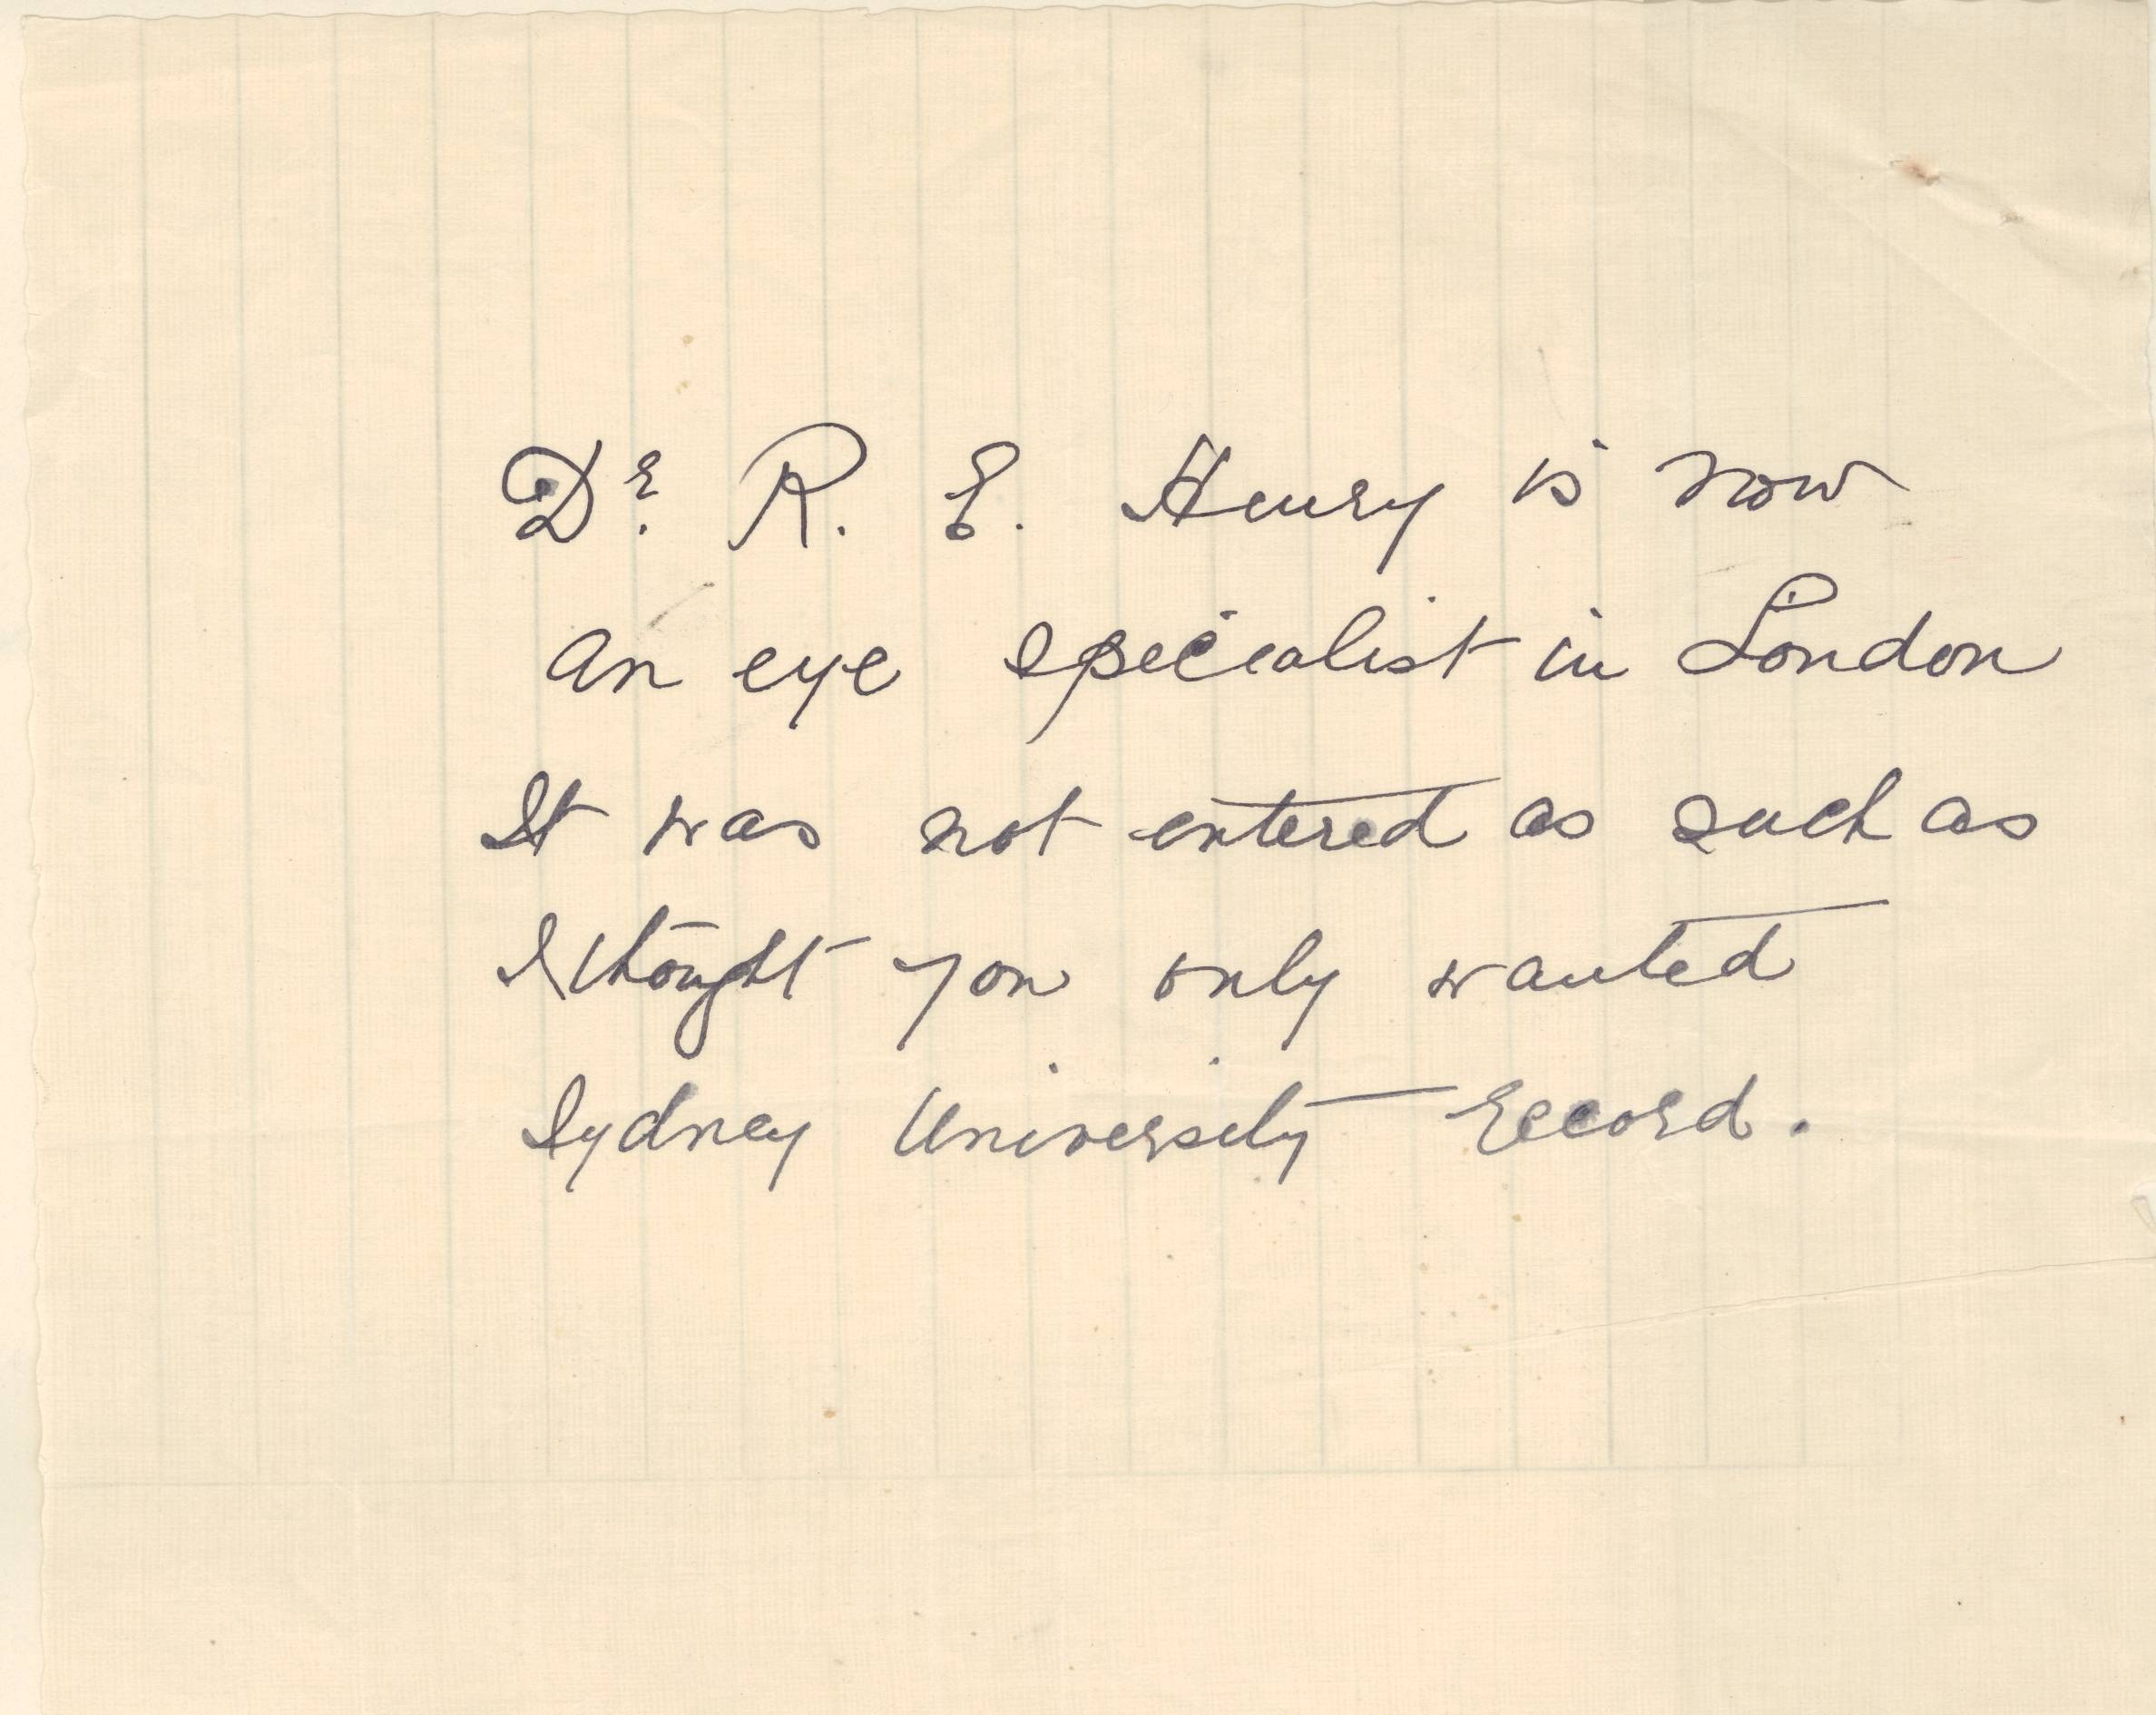 Dr. R. E. Henry is now
an eye specialist in London
It was not entered as such as
I thought you only wanted
Sydney University record.